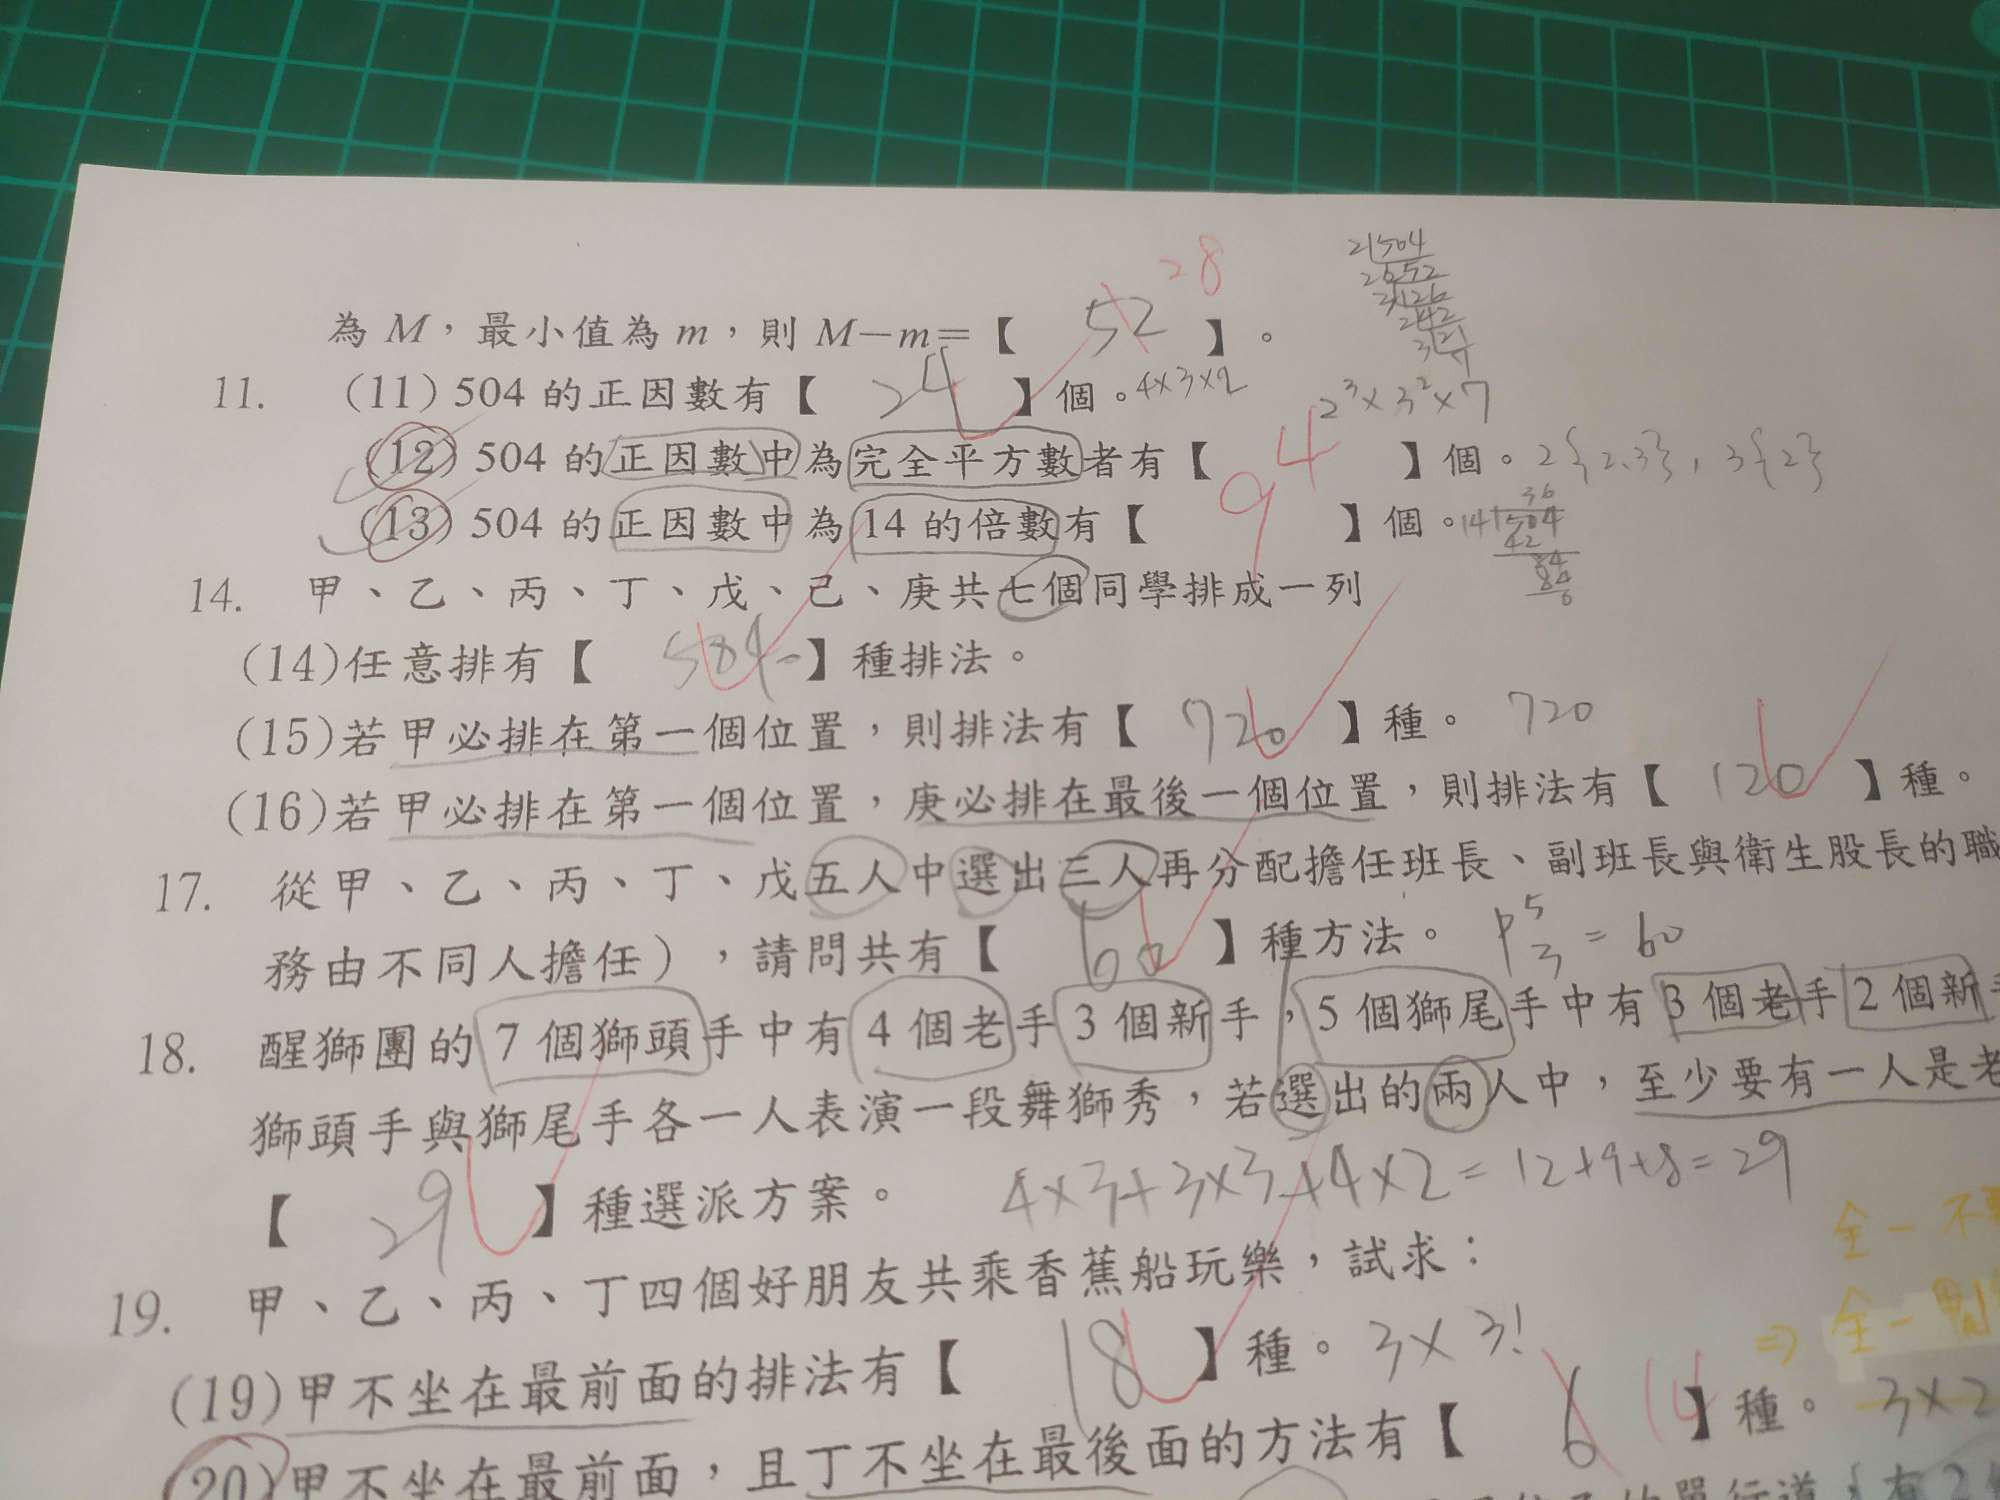 28
2 504
2 252
2 126
為 M，最小值為 m，則 M－m＝【 52 】。
11. (11) 504 的正因數有【 24 】個。4×3×2
2³×3²×7
(12) 504 的正因數中為完全平方數者有【 4 】個。2{2、3}，3{2}
36
(13) 504 的正因數中為 14 的倍數有【 9 】個。14 504
42
84
84
0
14. 甲、乙、丙、丁、戊、己、庚共七個同學排成一列
(14)任意排有【 】種排法。
(15)若甲必排在第一個位置，則排法有【 720 】種。 720
(16)若甲必排在第一個位置，庚必排在最後一個位置，則排法有【 120 】種。
17. 從甲、乙、丙、丁、戊五人中選出三人再分配擔任班長、副班長與衛生股長的職
務由不同人擔任），請問共有【 60 】種方法。 P⁵₃ = 60
18. 醒獅團的 7 個獅頭手中有 4 個老手 3 個新手，5 個獅尾手中有 3 個老手 2 個新手
獅頭手與獅尾手各一人表演一段舞獅秀，若選出的兩人中，至少要有一人是老
【 29 】種選派方案。 4×3+3×3+4×2=12+9+8=29
全－不
19. 甲、乙、丙、丁四個好朋友共乘香蕉船玩樂，試求：
⇒ 全－
(19)甲不坐在最前面的排法有【 18 】種。3×3!
(20)甲不坐在最前面，且丁不坐在最後面的方法有【 6 14 】種。 3×2
的單行道，有 2